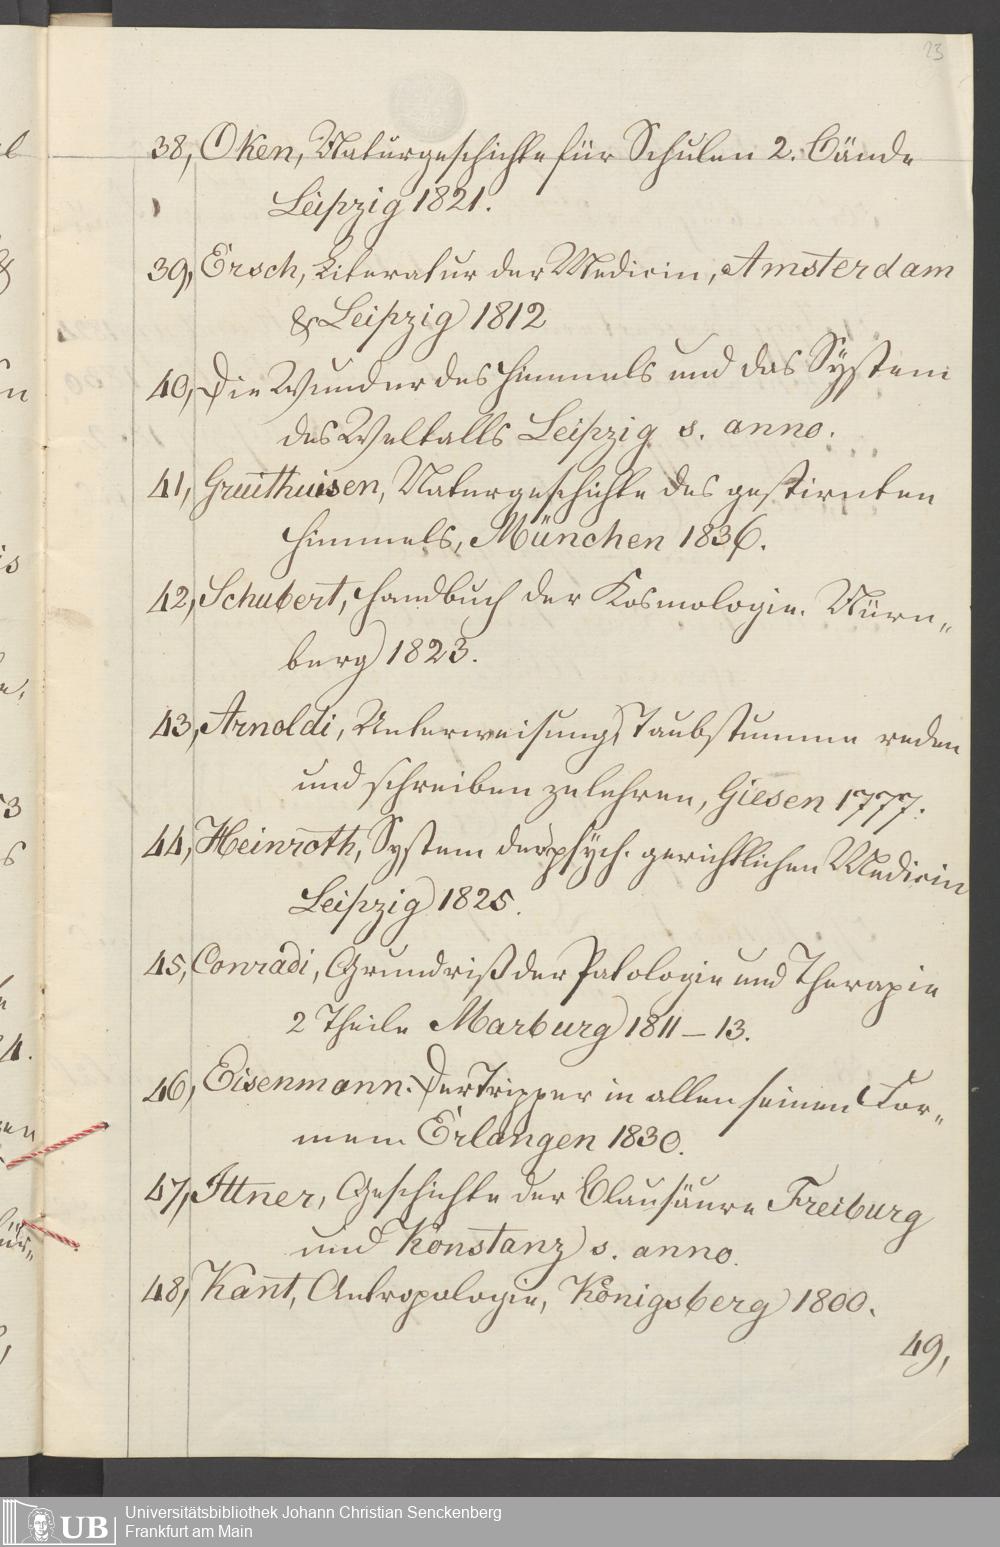 23
38, Oken, Naturgeschichte für Schulen 2. Bände
Leipzig 1821.
39, Ersch, Literatur der Medicin, Amsterdam
& Leipzig 1812
40, Die Wunder des Himmels und das System
des Weltalls Leipzig s. anno.
41, Gruithuisen, Naturgeschichte des gestirnten
Himmels, München 1836.
42, Schubert, Handbuch der Kosmologie. Nürn„
berg 1823.
43, Arnoldi, Unterweisung, Taubstumme reden
und schreiben zu lehren, Giesen 1777.
44, Heinroth, System der psych. gerichtlichen Medicin
Leipzig 1825.
45, Conradi, Grundriß der Patologie und Therapie
2 Theile Marburg 1811 – 13.
46, Eisenmann. Der Tripper in allen seinen For„
men Erlangen 1830.
47, Ittner, Geschichte der Blausäure Freiburg
und Konstanz s. anno.
48, Kant, Antropologie, Königsberg 1800.
49,
UB
Universitätsbibliothek Johann Christian Senckenberg
Frankfurt am Main